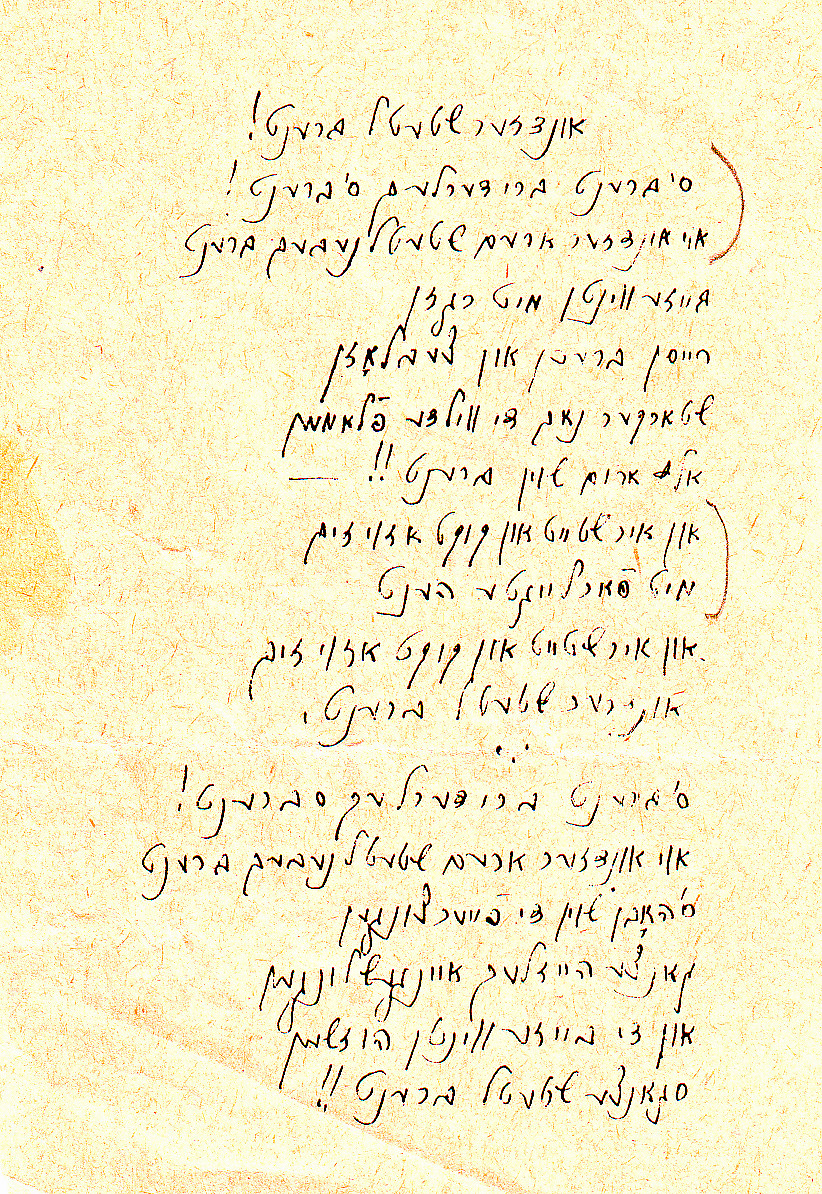 אונדזער שטעטל ברענט!
ס'ברענט ברידערלעם ס'ברענט!
אוי אונדזער ארעם שטעטל נעבעך ברענט
בייזע ווינטן מיט רגזן
רייסן ברעכן און צעבלאָזן
שטארקער נאך די ווילדע פֿלאממען
אלץ ארום שוין ברענט!!
און איר שטייט און קוקט אזוי זיך
מיט פֿארלייגטע הענט
און איר שטייט און קוקט אזוי זיך
אונדזער שטעטל ברענט.
ס'ברענט ברידערלעך ס ברענט!
אוי אונדזער ארעם שטעטל נעבעך ברענט
ס'האָבן שוין די פֿייערצונגען
גאנצע היידלעך איינגעשלונגען
און די בייזע ווינטן הוזשען
סגאנצע שטעטל ברענט!!